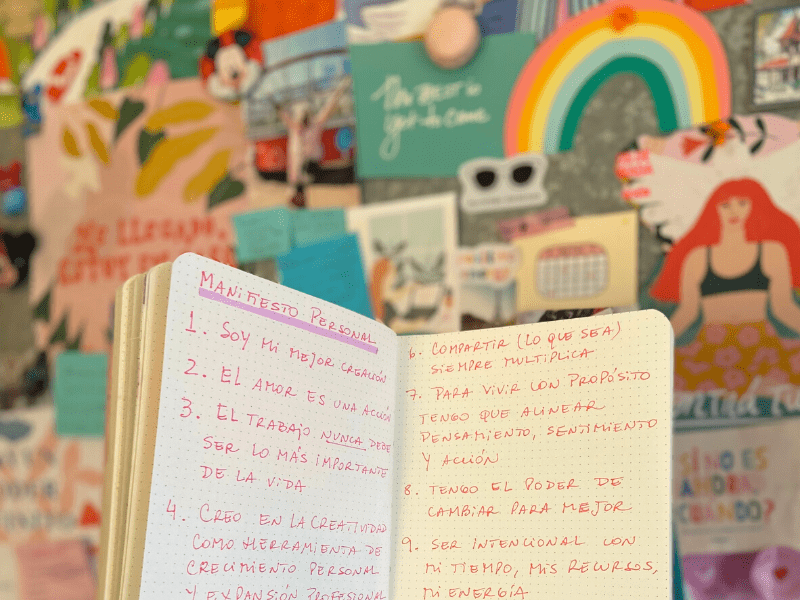 The BEST is
yet to come
MANIFIESTO PERSONAL
1. SOY MI MEJOR CREACIÓN
2. EL AMOR ES UNA ACCIÓN
3. EL TRABAJO NUNCA DEBE
SER LO MÁS IMPORTANTE
DE LA VIDA
4. CREO EN LA CREATIVIDAD
COMO HERRAMIENTA DE
CRECIMIENTO PERSONAL
Y EXPANSIÓN PROFESIONAL
6. COMPARTIR (LO QUE SEA)
SIEMPRE MULTIPLICA
7. PARA VIVIR CON PROPÓSITO
TENGO QUE ALINEAR
PENSAMIENTO, SENTIMIENTO
Y ACCIÓN
8. TENGO EL PODER DE
CAMBIAR PARA MEJOR
9. SER INTENCIONAL CON
MI TIEMPO, MIS RECURSOS,
MI ENERGÍA
SI NO ES
AHORA
CUÁNDO?